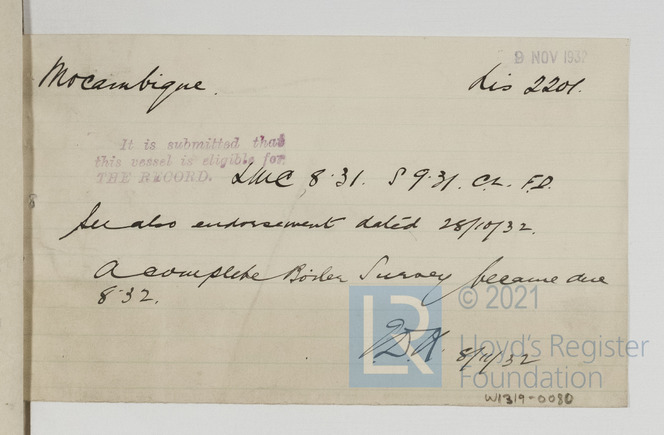 9 NOV 1932
Mocambique. Lis 2201.
It is submitted that
this vessel is eligible for
THE RECORD. LMC 8.31. S 9.31. C.L. F.D.
See also endorsement dated 28/10/32.
A complete Boiler Survey became due
8.32.
8/11/32
LR
© 2021
Lloyd's Register
Foundation
W1319-0080